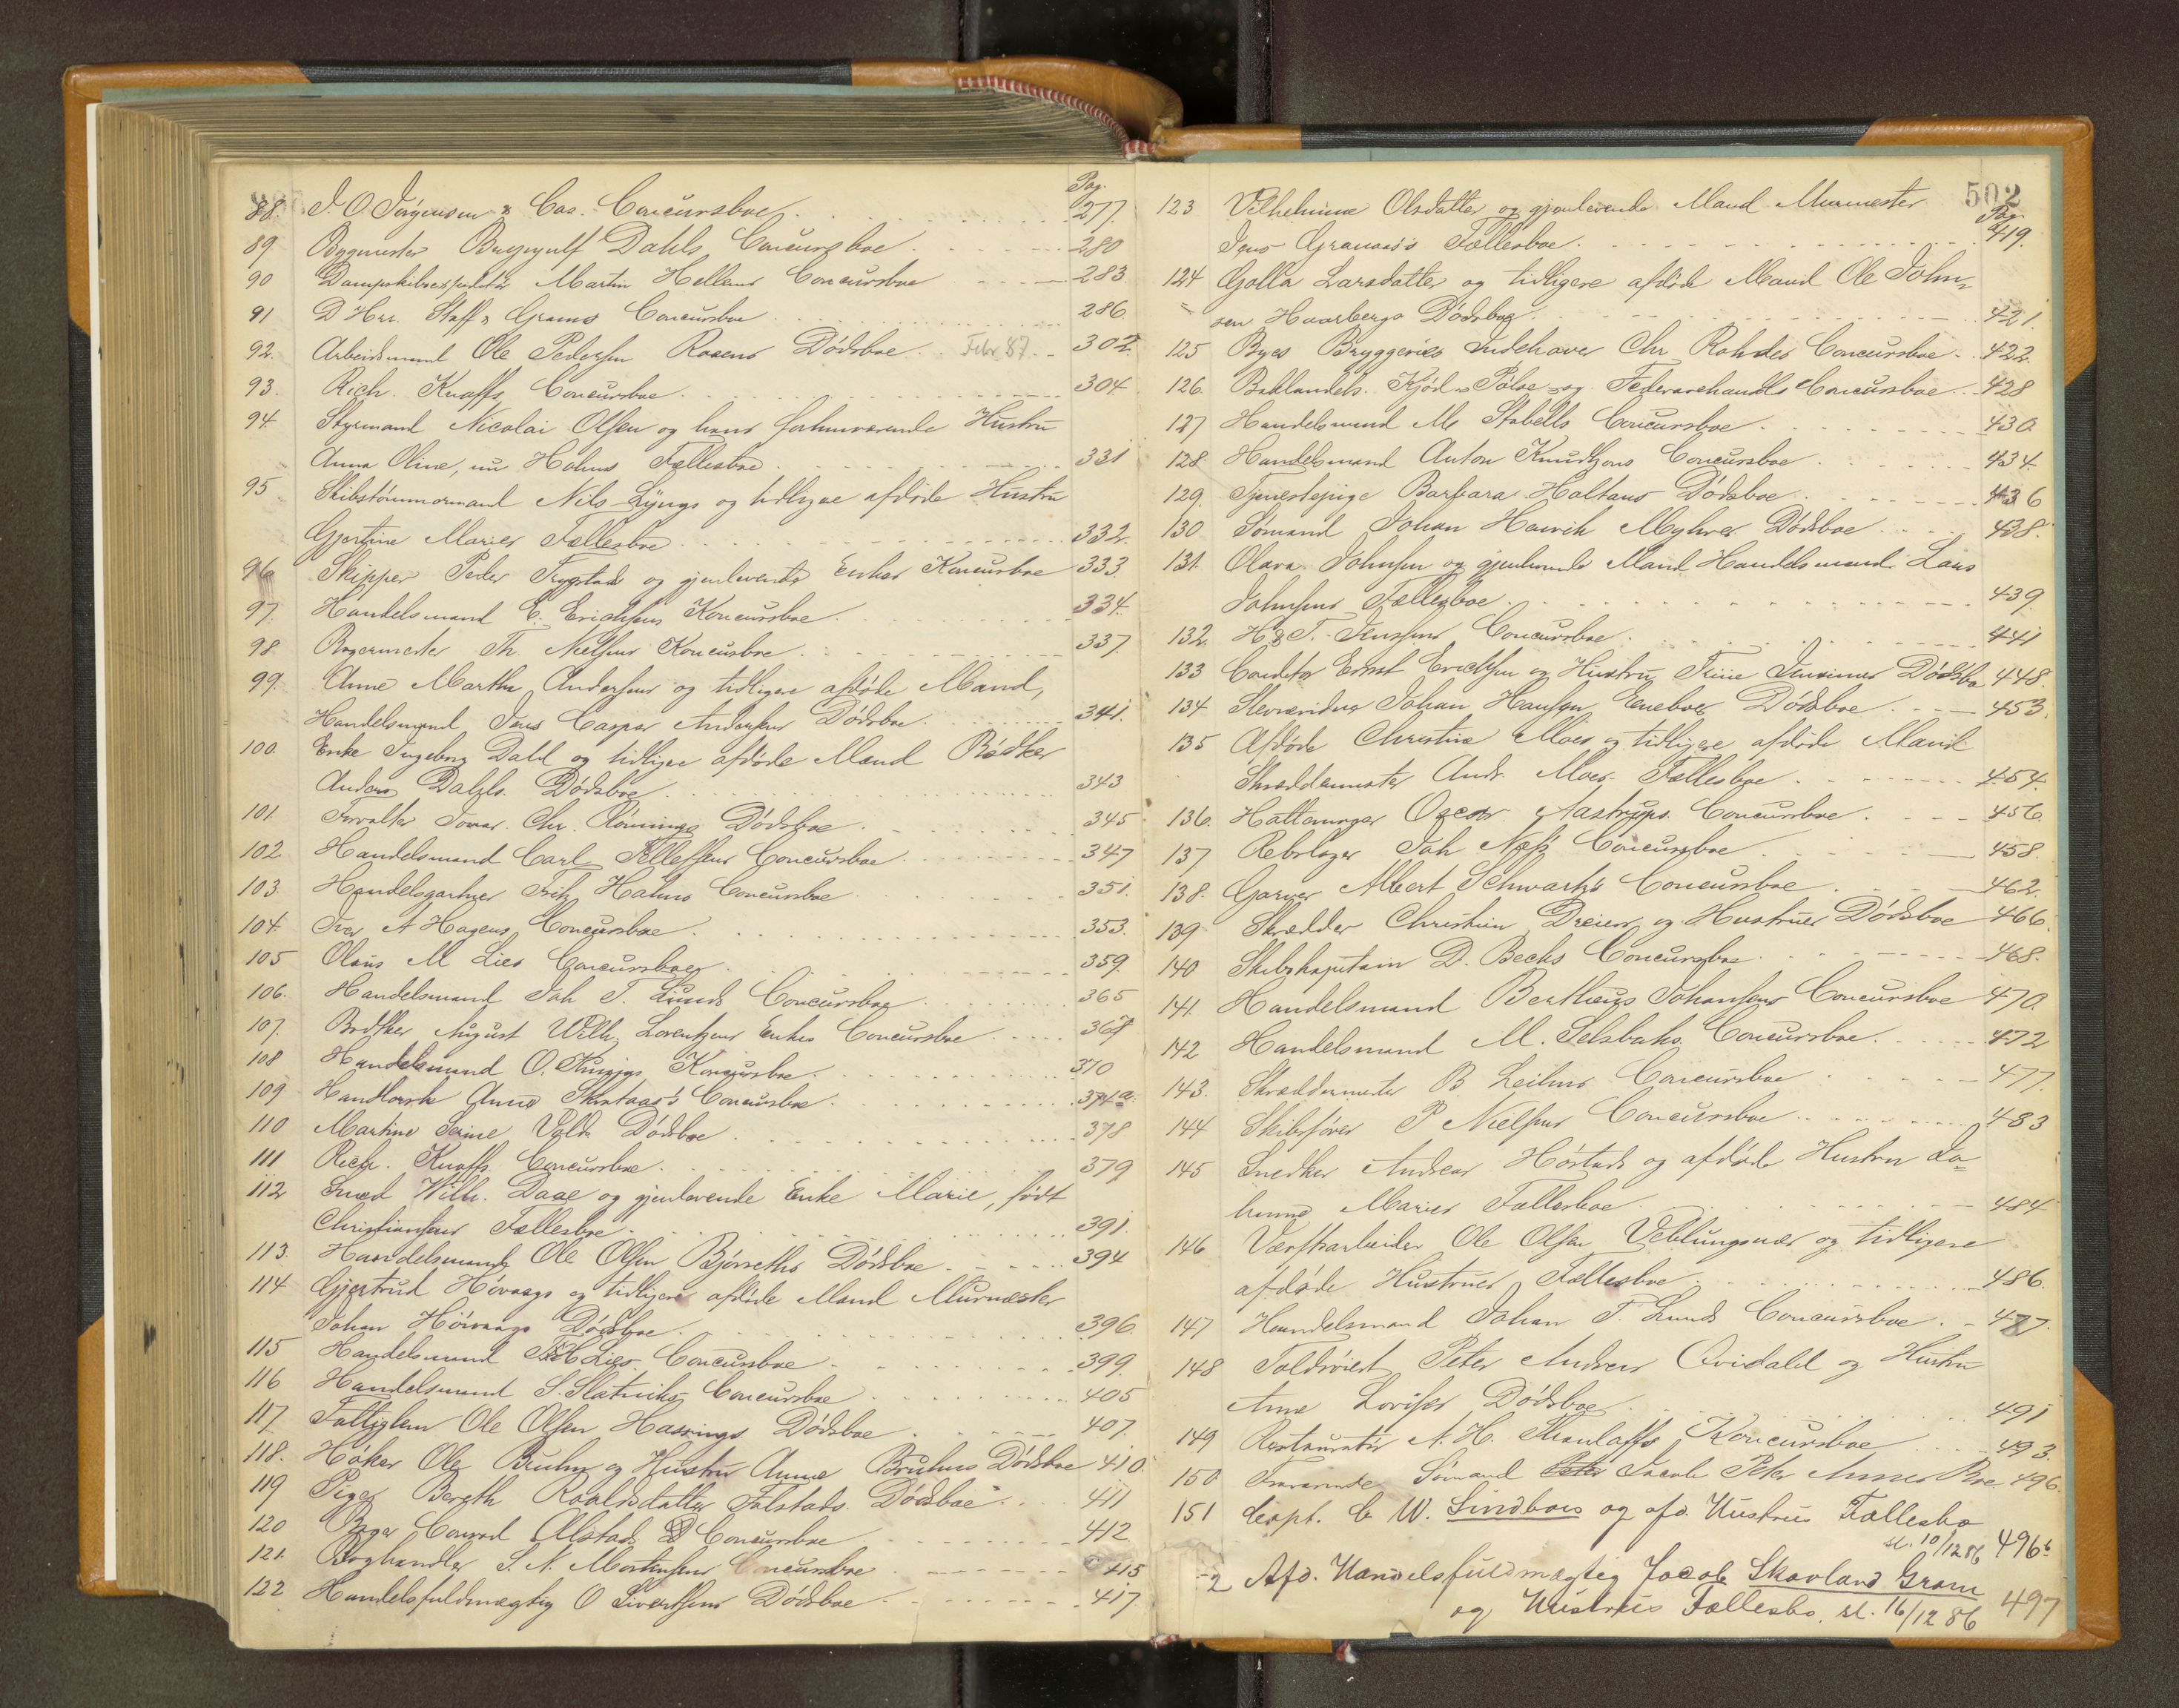 Pag.
88. J. O. Jörgensen & Cos. Concursboe 277.
89. Bygmester Dahls Concursboe 280
90 Dampskibsexpeditör Martin Hellems Concursboe 283.
91 D'Hrr. Staff & Grams Concursboe 286.
92. Arbeidsmand Ole Pedersen Rosens Dödsboe Febr 87. 302.
93. Rich. Knoffs Concursboe 304
94. Styrmand Nicolai Olsen og hans forhenværende Hustru
Anna Oline, nu Holms Fællesboe 331
95 Skibstömmermand Nils Lyngs og tidligere afdöde Hustru
Gjertine Maries Fællesboe 332.
96 Skipper Peder Trygstad og gjenlevende Enkes Koncursboe 333.
97. Handelsmand E. Erichsens Koncursboe 334.
98 Bagermester Th. Nielsens Koncursboe 337.
99. Anne Martha Andersens og tidligere afdöde Mand,
Handelsmand Jens Caspar Andersens Dödsboe 341.
100. Enke Ingeborg Dahl og tidligere afdöde Mand Bödker
Anders Dahls Dödsboe 343
101. Forvalter Chr. Rönnings Dödsboe 345
102. Handelsmand Carl Tellefsens Concursboe 347
103. Handelsgartner Fritz Holms Concursboe 351.
104. Iver A Hagens Concursboe 353.
105 Olaus M Lies Concursboe 359.
106. Handelsmand Joh T. Lunds Concursboe 365
107. Bödker August Wilh. Lorentzens Enkes Concursboe 367
108 Handelsmand O. Koncursboe 370
109 Handlerske Anne Concursboe 374a.
110 Martine Serine Volds Dödsboe 378
111 Rich. Knoffs Concursboe 379
112 Smed Wilh. Daae og gjenlevende Enke Marie, født
Christiansens Fællesboe 391.
113. Handelsmand Ole Olsen Björseths Dödsboe 394
114 Gjertrud Hövaags og tidligere afdöde Mand Murmester
Johan Hövaags Dödsboe 396.
115 Handelsmand Lies Concursboe 399.
116 Handelsmand S. Slatviks Concursboe 405
117 Fattiglem Ole Olsen Hassings Dödsboe 407.
118. Höker Ole Bruhn og Hustru Anne Bruhns Dödsboe 410.
119 Pige Bereth Roaldsdatter Falstads Dödsboe 411
120 Bager Conrad Alstads Concursboe 412
121. Boghandler S. N. Mortensens Concursboe 415
122 Handelsfuldmægtig O Sivertsens Dödsboe 417.
502
Pag.
123 Vilhelmine Olsdatter og gjenlevende Mand Murmester
Jens Granaas's Fællesboe 419.
124 Golla Larsdatter og tidligere afdöde Mand Ole John-
sen Haarbergs Dödsboe 421.
125 Byes Bryggeries Indehaver Chr. Rohdes Concursboe 422.
126. Baklandets Kjöd- Pölse- og Fedevarehandls Concursboe 428
127 Handelsmand M. Stabells Concursboe 430.
128. Handelsmand Anton Knudtzons Concursboe 434.
129. Tjenestepige Barbara Holtans Dödsboe 436
130 Sömand Johan Henrik Myhres Dödsboe 438.
131. Olava Johnsen og gjenlevende Mand Handelsmand Laus
Johnsens Fællesboe 439
132. H & T. Jenssens Concursboe 441
133 Conditor Ernst Erichsen og Hustru Trine Jensines Dödsbo 448.
134 Johan Hansen Eneboes Dödsboe 453.
135 Afdöde Christine Moes og tidligere afdöde Mand
Skræddermester Andr. Moes Fællesboe 454.
136. Hattemager Oscar Aastrups Concursboe 456.
137 Rebslager Joh Næss Concursboe 458.
138. Garver Albert Schwartz's Concursboe 462.
139 Skrædder Christian Dreiers og Hustrues Dödsboe 466.
140 Skibskaptain D. Bechs Concursboe 468.
141. Handelsmand Bertheus Johansens Concursboe 470.
142 Handelsmand M. Selsbaks Concursboe 472
143. Skræddermester B. Leilms Concursboe 477.
144 Skibsförer P Nielsens Concursboe 483
145 Snedker Andreas Höstads og afdöde Hustru
Maries Fællesboe 484
146 Værftsarbeider Ole Olsen Veblungsnæs og tidligere
afdöde Hustrues Fællesboe 486.
147 Handelsmand Johan T. Lunds Concursboe 477.
148 Peter Andreas Qvidahl og Hustru
Anne Lovises Dödsboe 491
149 Restauratör A. H. Koncursboe 493.
150 Fraværende Sömand Jacob Peter Boe 496.
151 Capt. C W. Lindboes og afd. Hustrus Fællesbo
sl. 10/12 86 496b
-2 Afd. Handelsfuldmægtig Jacob Skavland Gram
og Hustrus Fællesbo. sl. 16/12 86 497